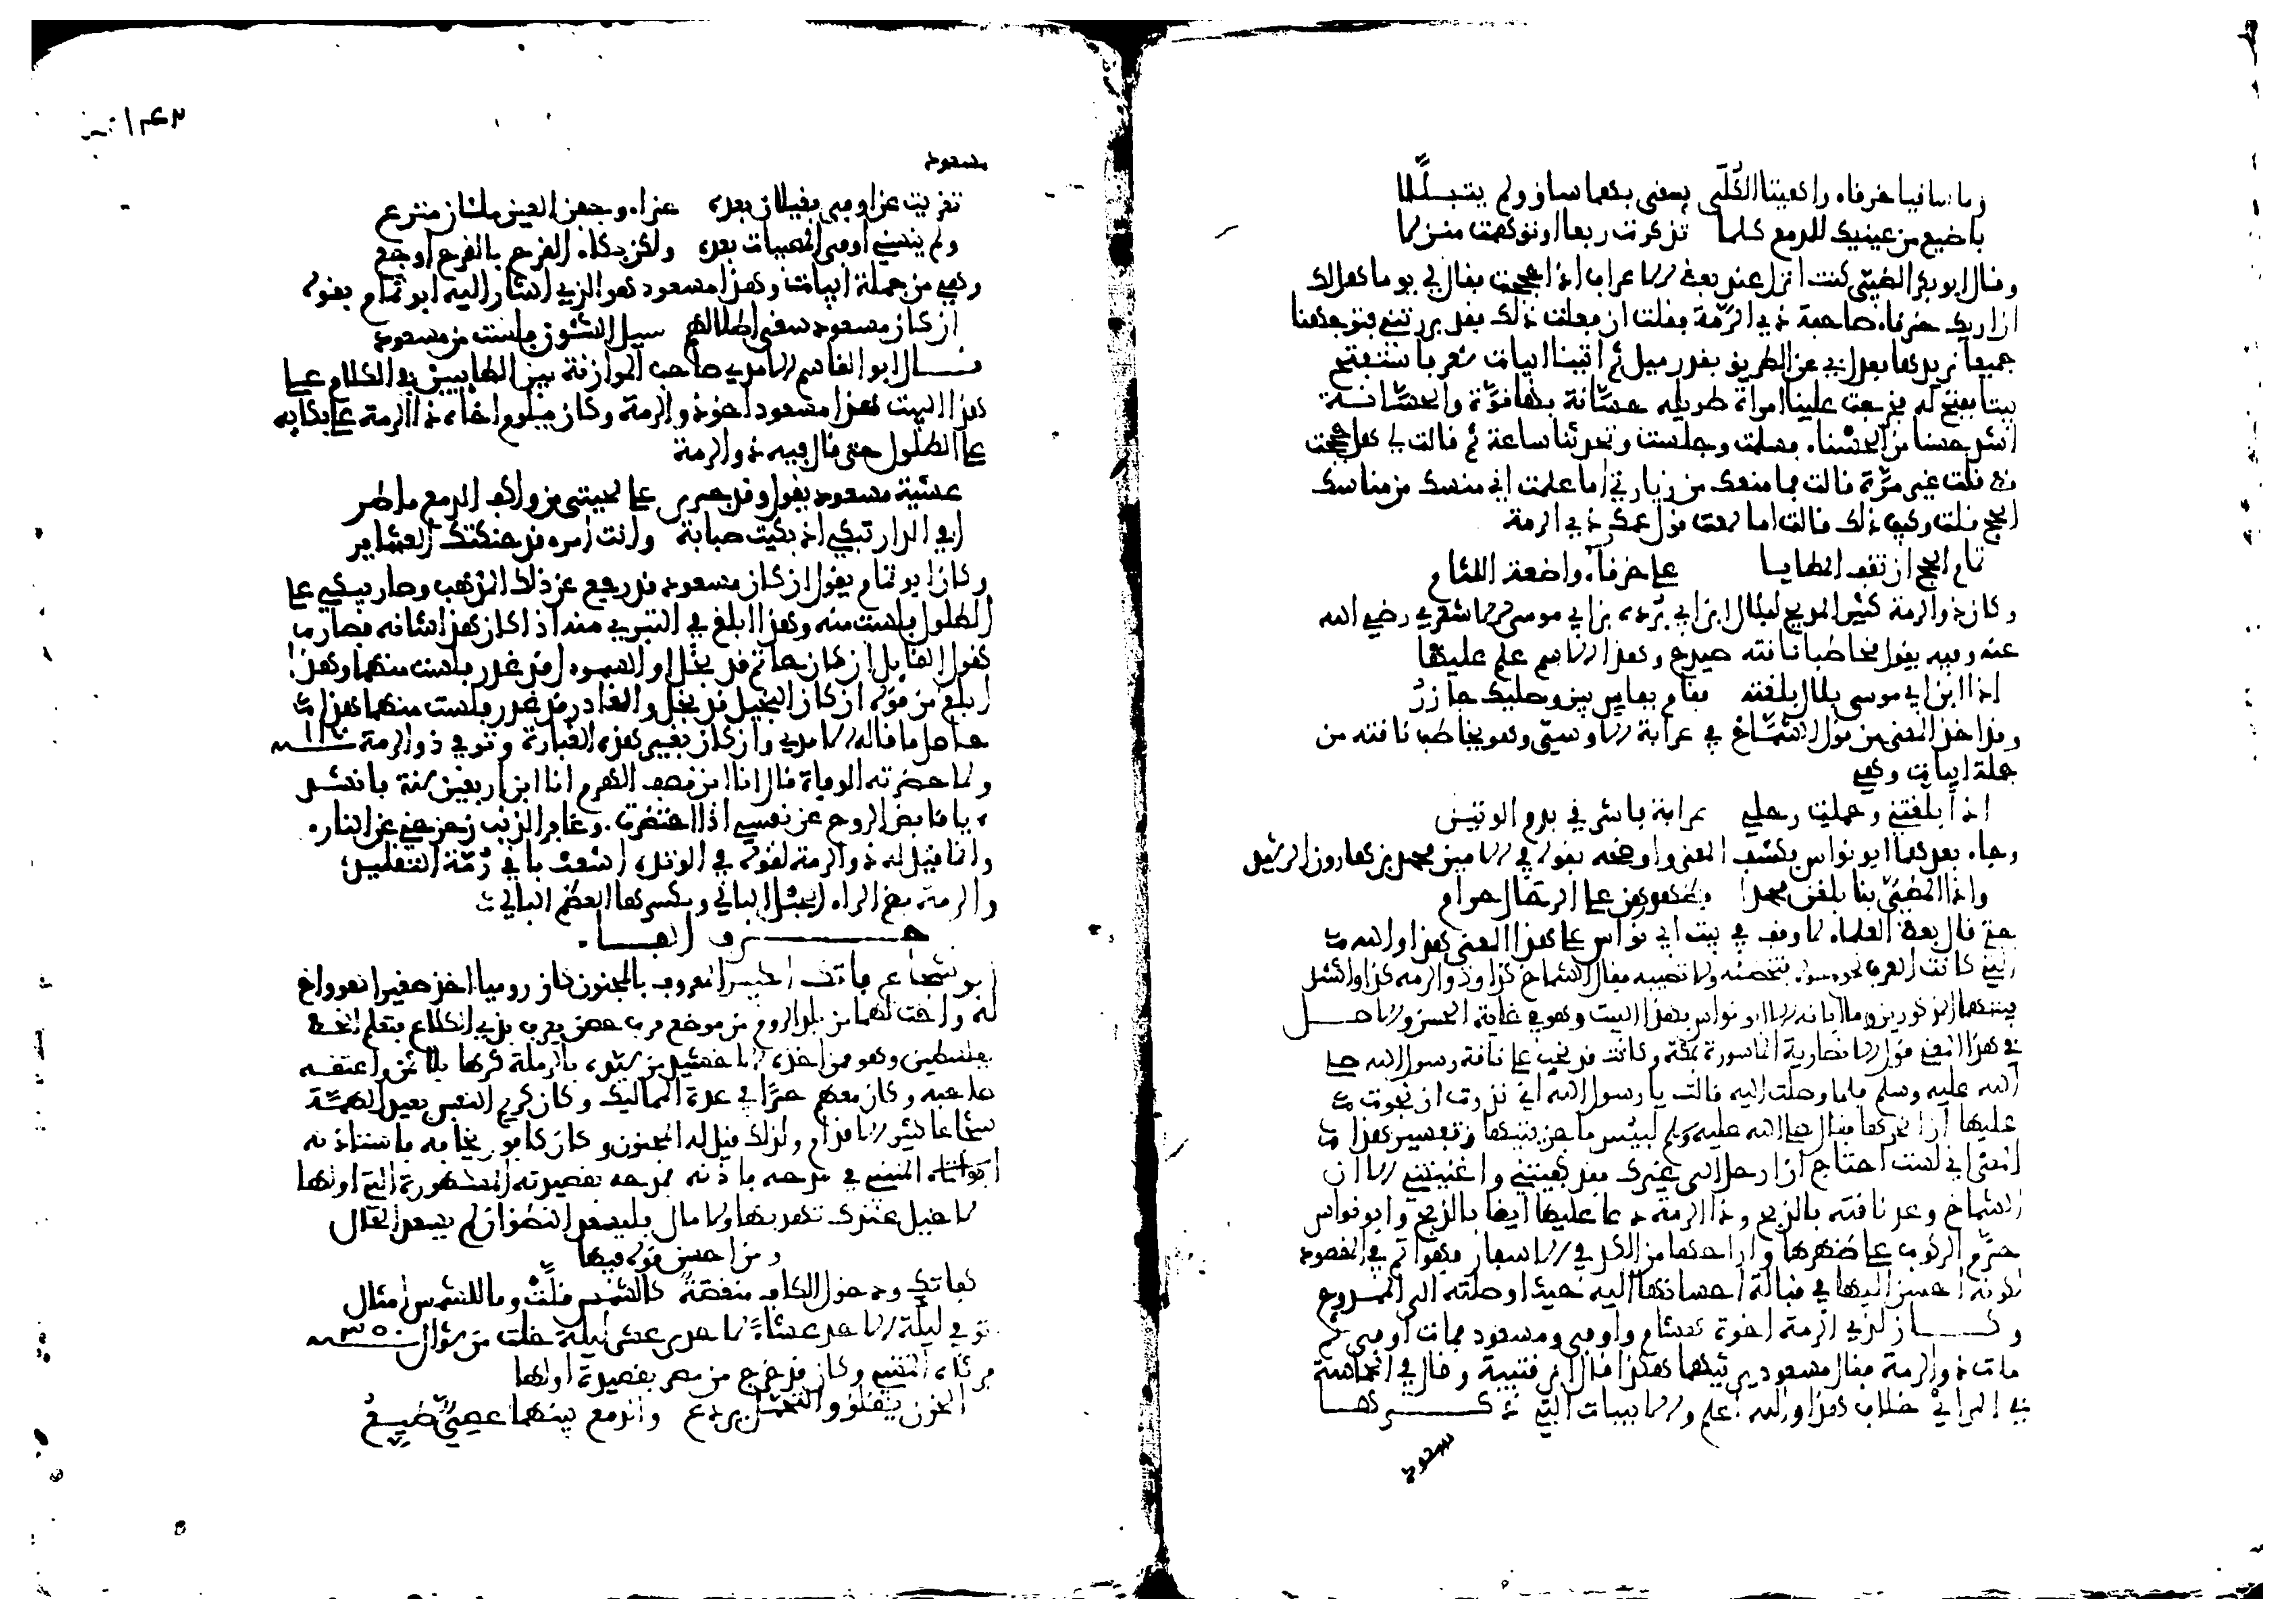 وما شنتا خرقاء واهيتا الكلى سقى بهما ساق ولم يتبللا
باضيع من عينيك للدمع كلما تذكرت ربعا او توهمت منزلا
وقال ابو بكر الضبي كنت انزل عند بعض الاعراب اذا حججت فقال لي يوما هل لك
ان اريك خرقاء صاحبة ذي الرمة فقلت ان فعلت ذلك فقد بررتني فتوجهنا
جميعا نريدها فعدل بي عن الطريق بقدر ميل ثم اتينا ابيات شعر فاستفتح
بيتا ففتح له فخرجت علينا امراة طويلة حسانة بها قوة والحسانة
اشد حسنا من الحسناء فسلمت وجلست وتحدثنا ساعة ثم قالت لي هل حججت
قط قلت غير مرة قالت فما منعك من زيارتي اما علمت اني منسك من مناسك
الحج قلت وكيف ذلك قالت اما سمعت قول عمك ذي الرمة
تمام الحج ان تقف المطايا على خرقاء واضعة اللثام
وكان ذو الرمة كثير المديح لبلال ابن ابي بردة بن ابي موسى الاشعري رضي الله
عنه وفيه يقول مخاطبا ناقته صيدح وهذا الاسم علم عليها
اذا ابن ابي موسى بلال بلغته فقام بفاس بين وصليك جازر
وقد اخذ المعنى من قول الشماخ في عرابة الاوسي وهو يخاطب ناقته من
جملة ابيات وهي
اذا بلغتني وحملت رحلي عرابة فاشرقي بدم الوتين
وجاء بعدهما ابو نواس فكشف المعنى واوضحه بقوله في الامين محمد بن هارون الرشيد
واذا المطي بنا بلغن محمدا فظهورهن على الرحال حرام
حتى قال بعض العلماء لما وقف في بيت ابي نواس على هذا المعنى هذا والله
التي كانت العرب تحوم حوله فتخطئه ولا تصيبه فقال الشماخ كذا وذو الرمة كذا وانشد
بيتيهما المذكورين وما ابانه الا ابو نواس بهذا البيت وهو في غاية الحسن والاصل
في هذا المعنى قول الانصارية الماسورة بمكة وكانت قد نجت على ناقة رسول الله صلى
الله عليه وسلم فلما وصلت اليه قالت يا رسول الله اني نذرت ان نجوت
عليها ان انحرها فقال صلى الله عليه وسلم لبئس ما جزيتها وتفسير هذا
المعنى اني لست احتاج ان ارحل الى غيرك فقد كفيتني واغنيتني الا ان
الشماخ وعد ناقته بالذبح وذا الرمة دعا عليها ايضا بالذبح وابو نواس
حرم الركوب على ظهرها واراحها من الكد في الاسفار فهو اتم في المقصود
لكونه احسن اليها في قبالة احسانها اليه حيث اوصلته الى الممدوح
وكان لذي الرمة اخوة هشام واوفى ومسعود فمات اوفى ثم
مات ذو الرمة فقال مسعود يرثيهما هكذا قال ابن قتيبة وقال في الحماسة
في المراثي خلاف هذا والله اعلم والابيات التي ذكرها
مسعود
مسعود
تعزيت عن اوفى بغيلان بعده عزاء وجفن العين ملان مترع
ولم ينسني اوفى المصيبات بعده ولكن نكاء القرح بالقرح اوجع
وهي من جملة ابيات وهذا مسعود هو الذي اشار اليه ابو تمام بقوله
ان كان مسعود سقى اطلالهم سيل الشئون فلست من مسعود
قال ابو القاسم الامدي صاحب الموازنة بين الطاييين في الكلام على
هذا البيت هذا مسعود اخو ذي الرمة وكان يلوم اخاه ذا الرمة على بكايه
على الطلول حتى قال فيه ذو الرمة
عشية مسعود يقول وقد جرى على لحيتي من واكف الدمع قاطر
افي الدار تبكي اذ بكيت صبابة وانت امرؤ قد حنكتك العشاير
وكان ابو تمام يقول ان كان مسعود قد رجع عن ذلك المذهب وصار يبكي على
الطلول فلست منه وهذا ابلغ في التبري منه اذا كان هذا شانه فصار
كقول القايل ان كان حاتم قد بخل او السموءل قد غدر فلست منهما وهذا
ابلغ من قوله ان كان البخيل قد بخل والغادر قد غدر فلست منهما هذا
حاصل ما قاله الامدي وان كان بغير هذه العبارة وتوفي ذو الرمة ١١٧
ولما حضرته الوفاة قال انا ابن نصف الهرم انا ابن اربعين سنة وانشد
يا قابض الروح عن نفسي اذا احتضرت وغافر الذنب زحزحني عن النار
وانما قيل له ذو الرمة لقوله في الوتد اشعث باقي رمة التقليد
والرمة بضم الراء الحبل البالي وبكسرها العظم البالي
حرف الفاء
ابو شجاع فاتك الكبير المعروف بالمجنون كان روميا اخذ صغيرا هو واخ
له واخت لهما من بلد الروم من موضع قرب حصن يعرف بذي الكلاع فتعلم الخط
بفلسطين وهو ممن اخذه الاخشيد من سيده بالرملة كرها بلا ثمن واعتقه
صاحبه وكان معهم حرا في عدة المماليك وكان كريم النفس بعيد الهمة
شجاعا كثير الاقدام ولذلك قيل له المجنون وكان كافور يخافه فاستاذنه
المتنبي في مدحه فاذنه فمدحه بقصيدته المشهورة التي اولها
لا خيل عندك تهديها ولا مال فليسعد النطق ان لم يسعد الحال
ومن احسن قوله فيها
كفاتك ودخول الكاف منقصة كالشمس قلت وما للشمس امثال
توفي ليلة الاحد عشاء لاحدى عشر ليلة خلت من شوال ٣٥٠
فرثاه المتنبي وكان قد خرج من مصر بقصيدة اولها
الحزن يقلق والتجمل يردع والدمع بينهما عصي طيع